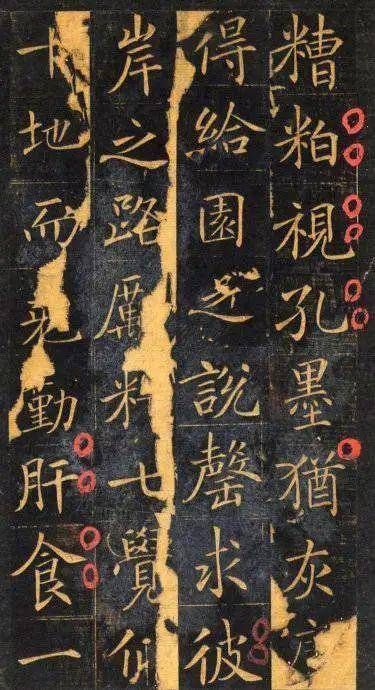 糟粕視孔墨猶灰
得給園之說罄求彼
岸之路厲七覺仰
十地而克勤肝食一